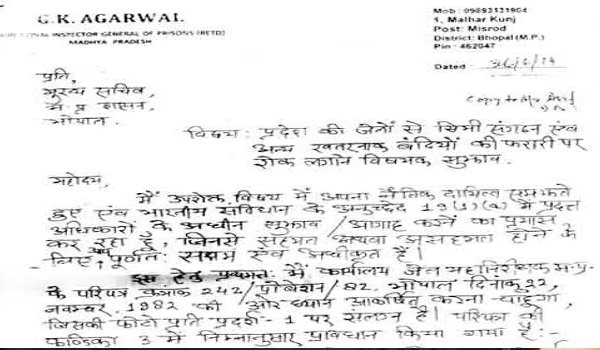 G.K. AGARWAL
INSPECTOR GENERAL OF PRISONS (RETD)
MADHYA PRADESH
Mob : 09893121904
1, Malhar Kunj
Post: Misrod
District: Bhopal (M.P.)
Pin : 462047
Dated 26/6/14
Copy to Mr
प्रति,
मुख्य सचिव,
म.प्र. शासन,
भोपाल
विषय: प्रदेश की जेलों से सिमी संगठन एवं
अन्य खतरनाक बंदियों की फरारी पर
रोक लगाने विषयक सुझाव.
महोदय,
मैं उपरोक्त विषय में अपना नैतिक दायित्व समझते
हुए एवं भारतीय संविधान के अनुच्छेद 19(1)(a) में प्रदत्त
अधिकारों के अधीन सुझाव / आगाह करने का प्रयास
कर रहा हूँ, जिनसे सहमत अथवा असहमत होने के
लिए पूर्णतः सक्षम एवं अधीकृत हैं।
इस हेतु प्रथमतः मैं कार्यालय जेल महानिरीक्षक म.प्र.
के परिपत्र क्रमांक 242/प्रोबेशन/82. भोपाल दिनांक 22,
नवम्बर 1982 की ओर ध्यान आकर्षित करना चाहूंगा,
जिसकी फोटो प्रति प्रदर्श-1 पर संलग्न है। परिपत्र की
कण्डिका 3 में निम्नानुसार प्रावधान किया गया है:-